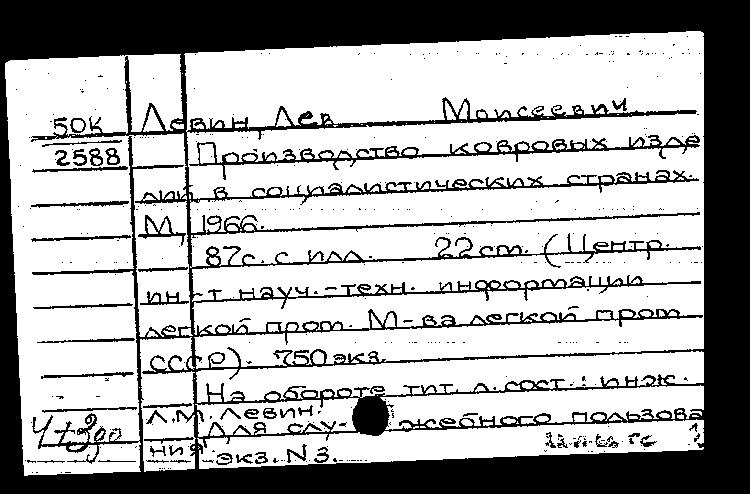 50К Левин, Лев Моисеевич
2588 Производство ковровых изде
лий в социалистических странах.
М, 1966.
87с. с илл. 22cm. (Центр.
ин-т науч.-техн. информации
легкой пром. М-ва легкой пром
СССР). 750 экз.
На обороте тит. л. сост.: инж.
Л.М. Левин.
Для слу- жебного пользова
ния экз. N 3.